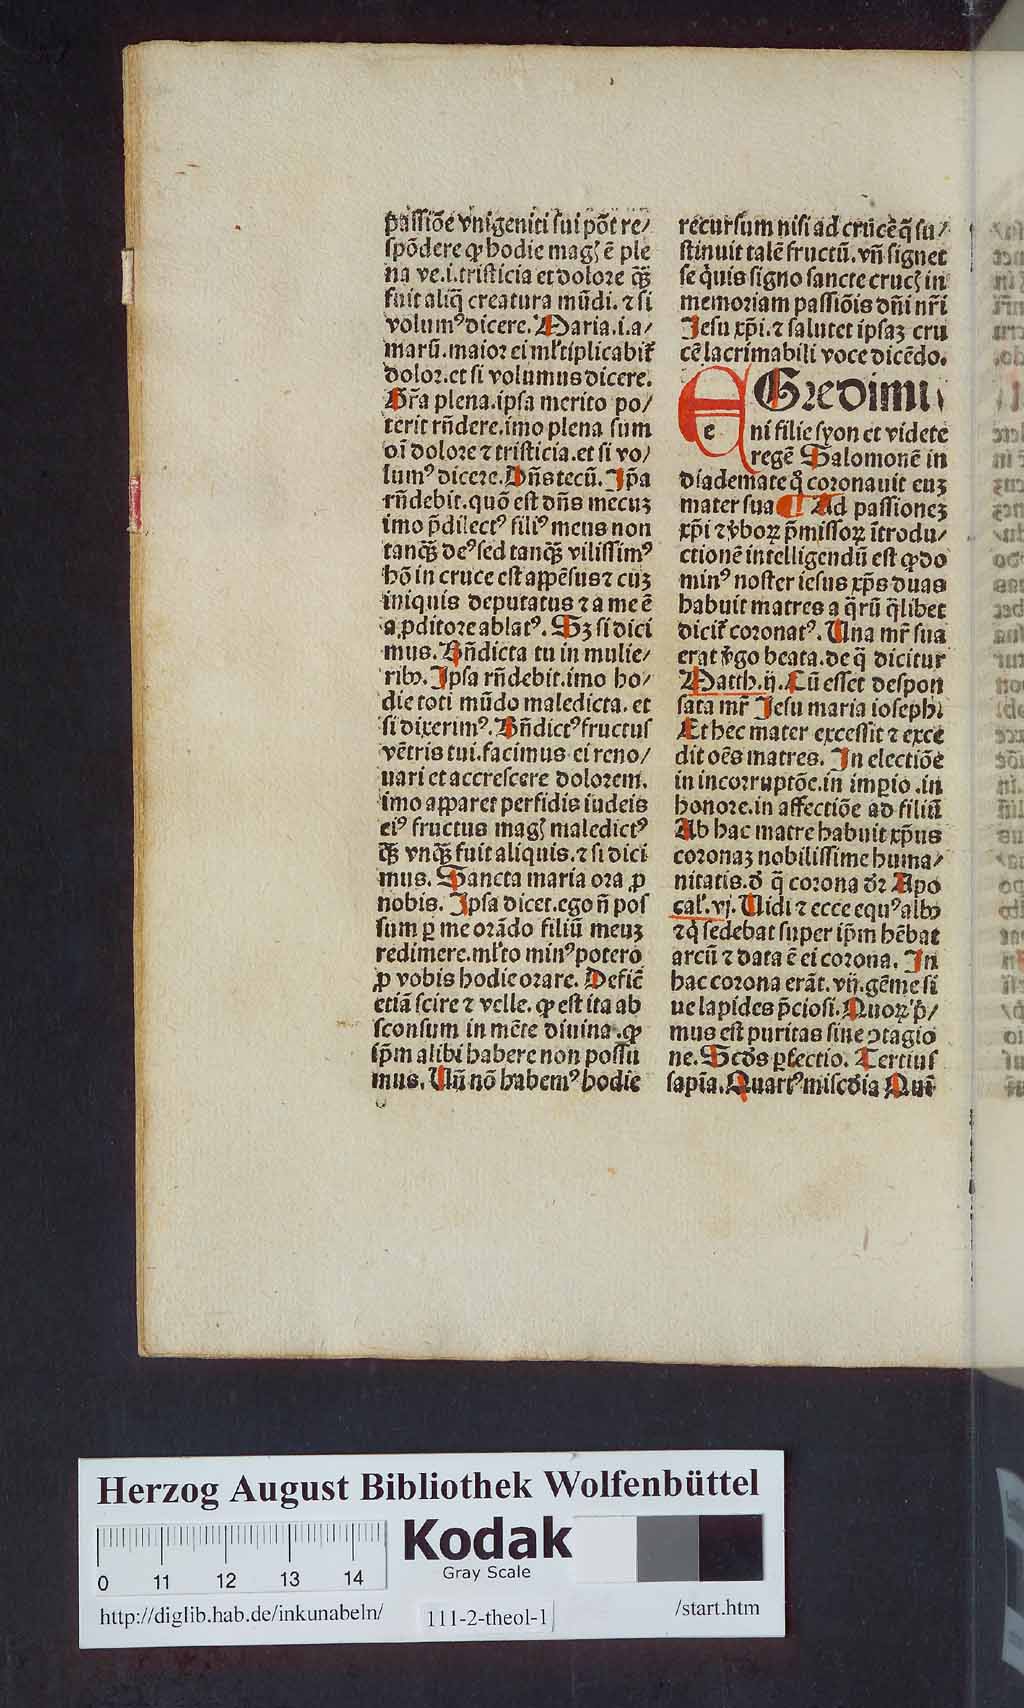 passiõe vnigeniti sui põt re/
spõdere ꝙ hodie magꝭ ẽ ple
na ve.i.tristicia et dolore qꝫ̃
fuit aliq̃ creatura mũdi. ⁊ si
volumꝰ dicere. Maria.i.a/
marũ.maior ei ml̃tiplicabit᷑
dolor.et si volumus dicere.
Gr̃a plena.ipsa merito po/
terit rñdere.imo plena sum
oĩ dolore ⁊ tristicia.et si vo/
lumꝰ dicere. Dñs tecũ. Ip̃a
rñdebit.quõ est dñs mecuꝫ
imo p̃dilectꝰ filiꝰ meus non
tanqꝫ̃ deꝰ sed tanqꝫ̃ vilissimꝰ
hõ in cruce est appẽsus ⁊ cuꝫ
iniquis deputatus ⁊ a me ẽ
a ꝓditore ablatꝰ. Sꝫ si dici
mus. Bñdicta tu in mulie/
ribꝰ. Ipsa rñdebit.imo ho/
die toti mũdo maledicta. et
si dixerimꝰ. Bñdictꝰ fructus
vẽtris tui.facimus ei reno/
uari et accrescere dolorem.
imo apparet perfidis iudeis
eiꝰ fructus magꝭ maledictꝰ
qꝫ̃ vnqꝫ̃ fuit aliquis.⁊ si dici
mus. Sancta maria ora ꝓ
nobis. Ipsa dicet.ego ñ pos
sum ꝑ me orãdo filiũ meuꝫ
redimere.ml̃to minꝰ potero
ꝓ vobis hodie orare. Deficẽ
etiã scire ⁊ velle. ꝙ est ita ab
sconsum in mẽte diuina .ꝙ
ip̃m alibi habere non possu
mus. Vñ nõ habemꝰ hodie
recursum nisi ad crucẽ q̃ su/
stinuit talẽ fructũ. vñ signet
se q̇uis signo sancte crucꝭ in
memoriam passiõis dñi nr̃i
Jesu xp̃i.⁊ salutet ipsaꝫ cru
cẽ lacrimabili voce dicẽdo.
e
Gredimi
ni filie syon et videte
regẽ Salomonẽ in
diademate q̊ coronauit euꝫ
mater sua ¶ Ad passioneꝫ
xp̃i ⁊ v̾boꝝ p̃missoꝝ ĩtrodu/
ctionẽ intelligendũ est ꝙ do
minꝰ noster iesus xp̃s duas
habuit matres a q̃rũ q̃libet
dicit᷑ coronatꝰ. Una mr̃ sua
erat v̾go beata.de q̃ dicitur
Matth.ij. Cũ esset despon
sata mr̃ Jesu maria ioseph.
Et hec mater excessit ⁊ exce
dit oẽs matres. In electiõe
in incorruptõe.in imꝑio .in
honore.in affectiõe ad filiũ
Ab hac matre habuit xp̃us
coronaꝫ nobilissime huma/
nitatis.d̾ q̃ corona dr̃ Apo
cal̾. vj. Uidi ⁊ ecce equꝰ albꝰ
⁊ q̇ sedebat super ip̃m hẽbat
arcũ ⁊ data ẽ ei corona. In
hac corona erãt. vij. gẽme si
ue lapides p̃ciosi. Quoꝝ p̾/
mus est puritas sine ↄtagio
ne. Scd̾s ꝑfectio. Tertius
sapĩa. Quartꝰ miscd̾ia Quĩ
Herzog August Bibliothek Wolfenbüttel
Kodak
Gray Scale
0 11 12 13 14
http://diglib.hab.de/inkunabeln/
111-2-theol-1
/start.htm